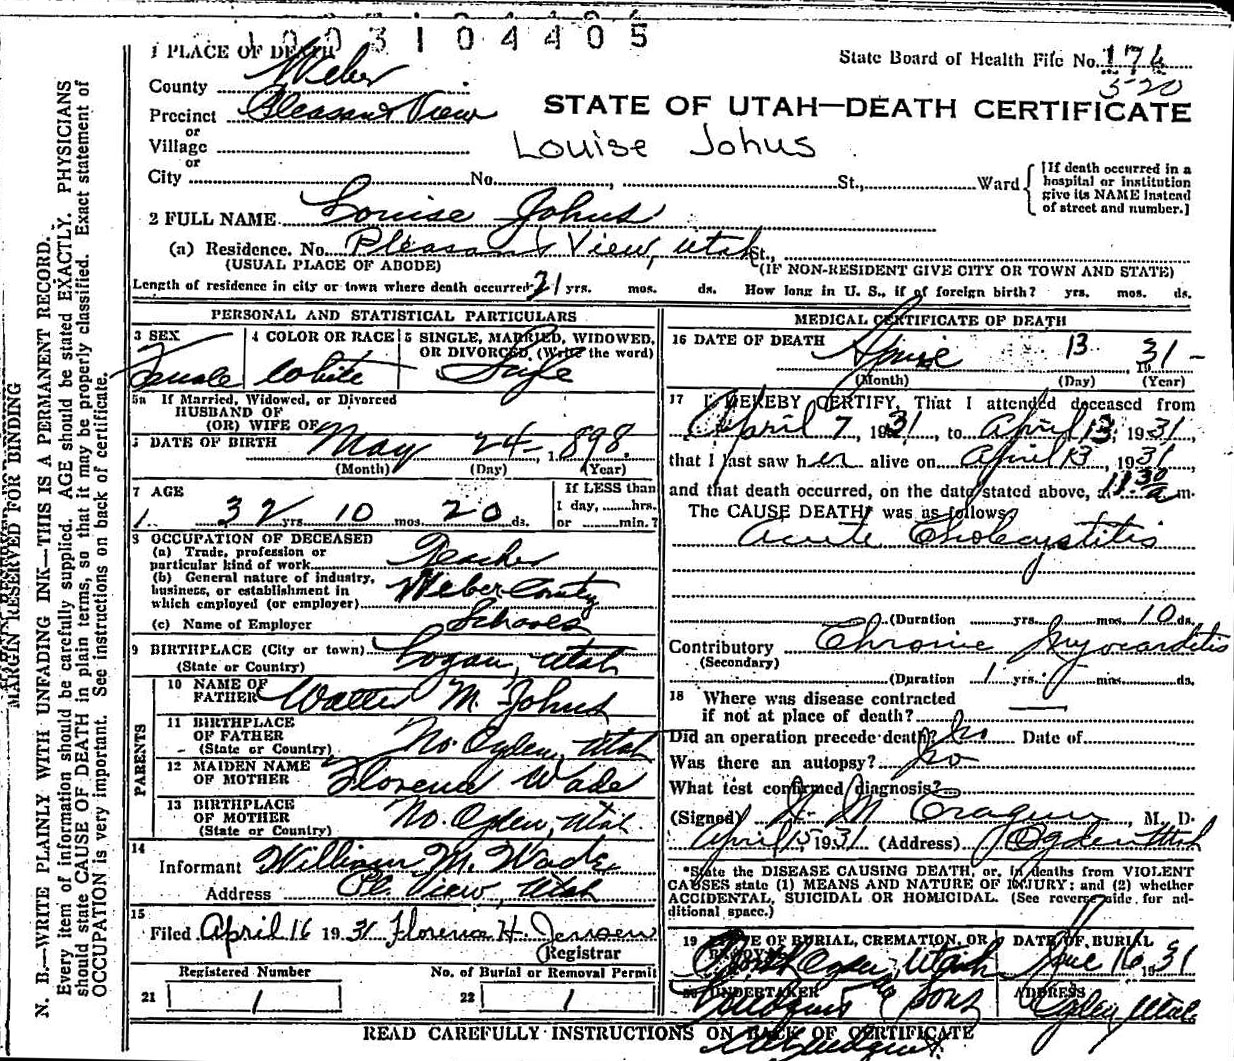 1003104405
1 PLACE OF DEATH
State Board of Health File No. 176
5-20
County Weber
Precinct Pleasant View
STATE OF UTAH—DEATH CERTIFICATE
or
Village
Louise Johns
or
City No. , St., Ward
[If death occurred in a hospital or institution give its NAME instead of street and number.]
2 FULL NAME Louise Johns
(a) Residence. No. Pleasant View, Utah St.,
(USUAL PLACE OF ABODE) (IF NON-RESIDENT GIVE CITY OR TOWN AND STATE)
Length of residence in city or town where death occurred 31 yrs. mos. ds. How long in U. S., if of foreign birth? yrs. mos. ds.
PERSONAL AND STATISTICAL PARTICULARS
3 SEX Female
4 COLOR OR RACE White
5 SINGLE, MARRIED, WIDOWED, OR DIVORCED, (Write the word) Single
5a If Married, Widowed, or Divorced
HUSBAND OF
(OR) WIFE OF
DATE OF BIRTH May 24 - 1898
(Month) (Day) (Year)
7 AGE
32 yrs. 10 mos. 20 ds.
If LESS than
1 day, hrs.
or min.?
8 OCCUPATION OF DECEASED
(a) Trade, profession or particular kind of work Teacher
(b) General nature of industry, business, or establishment in which employed (or employer) Weber County
(c) Name of Employer Schools
9 BIRTHPLACE (City or town) Logan, Utah
(State or Country)
PARENTS
10 NAME OF FATHER Walter M. Johns
11 BIRTHPLACE OF FATHER No. Ogden, Utah
(State or Country)
12 MAIDEN NAME OF MOTHER Florence Wade
13 BIRTHPLACE OF MOTHER No. Ogden, Utah.
(State or Country)
14
Informant William M. Wade
Address Pl. View, Utah
15
Filed April 16 1931 Florence H. Jensen
Registrar
Registered Number No. of Burial or Removal Permit
21 1 22 1
MEDICAL CERTIFICATE OF DEATH
16 DATE OF DEATH 13 1931
(Month) (Day) (Year)
17 I HEREBY CERTIFY, That I attended deceased from
April 7, 1931, to April 13, 1931,
that I last saw her alive on April 13, 1931,
and that death occurred, on the date stated above, at 11:30 a m.
The CAUSE DEATH was as follows
Acute Cholecystitis
(Duration yrs. mos. 10 ds.
Contributory Chronic Myocarditis
(Secondary)
(Duration 1 yrs. mos. ds.
18 Where was disease contracted
if not at place of death?
Did an operation precede death? No Date of
Was there an autopsy? No
What test confirmed diagnosis?
(Signed) M Cragun, M. D.
April 15 1931 (Address) Ogden Utah
*State the DISEASE CAUSING DEATH, or, in deaths from VIOLENT
CAUSES state (1) MEANS AND NATURE OF INJURY: and (2) whether
ACCIDENTAL, SUICIDAL OR HOMICIDAL. (See reverse side for additional space.)
19 PLACE OF BURIAL, CREMATION, OR
North Ogden, Utah
DATE OF BURIAL
16 1931
20 UNDERTAKER
& Sons
ADDRESS
Ogden Utah
READ CAREFULLY INSTRUCTIONS ON BACK OF CERTIFICATE
MARGIN RESERVED FOR BINDING
N. B.—WRITE PLAINLY WITH UNFADING INK—THIS IS A PERMANENT RECORD.
Every item of information should be carefully supplied. AGE should be stated EXACTLY. PHYSICIANS
should state CAUSE OF DEATH in plain terms, so that it may be properly classified. Exact statement of
OCCUPATION is very important. See instructions on back of certificate.